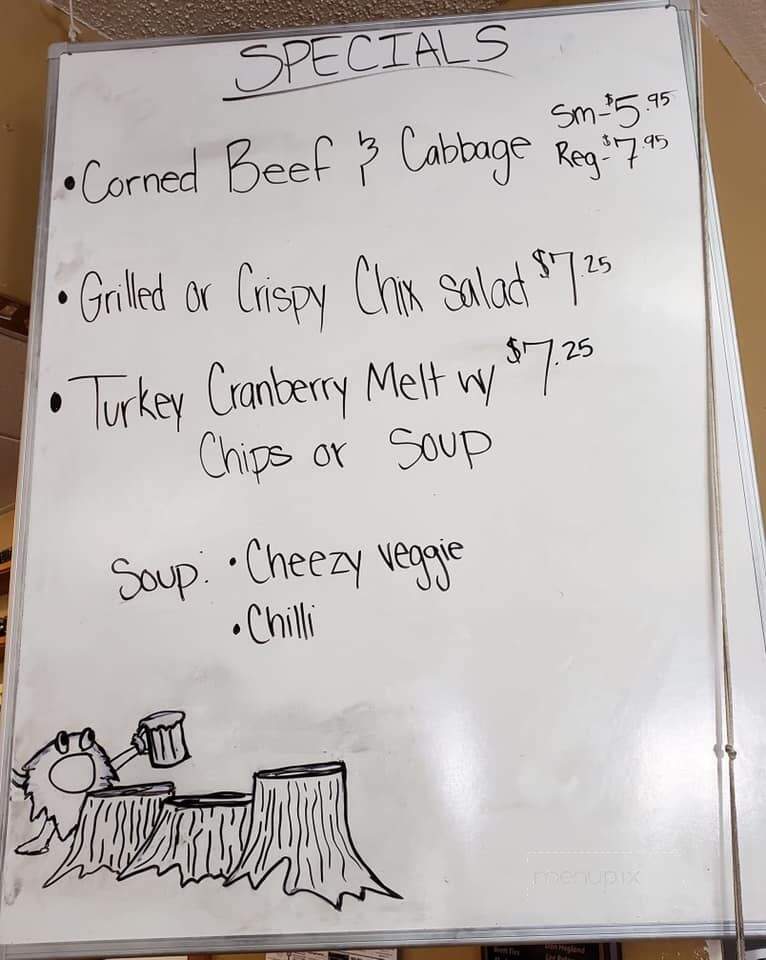 SPECIALS
• Corned Beef & Cabbage Sm-$5.95
Reg-$7.95
• Grilled or Crispy Chix salad $7.25
• Turkey Cranberry Melt w/ $7.25
Chips or Soup
Soup: • Cheezy veggie
• Chilli
menupix